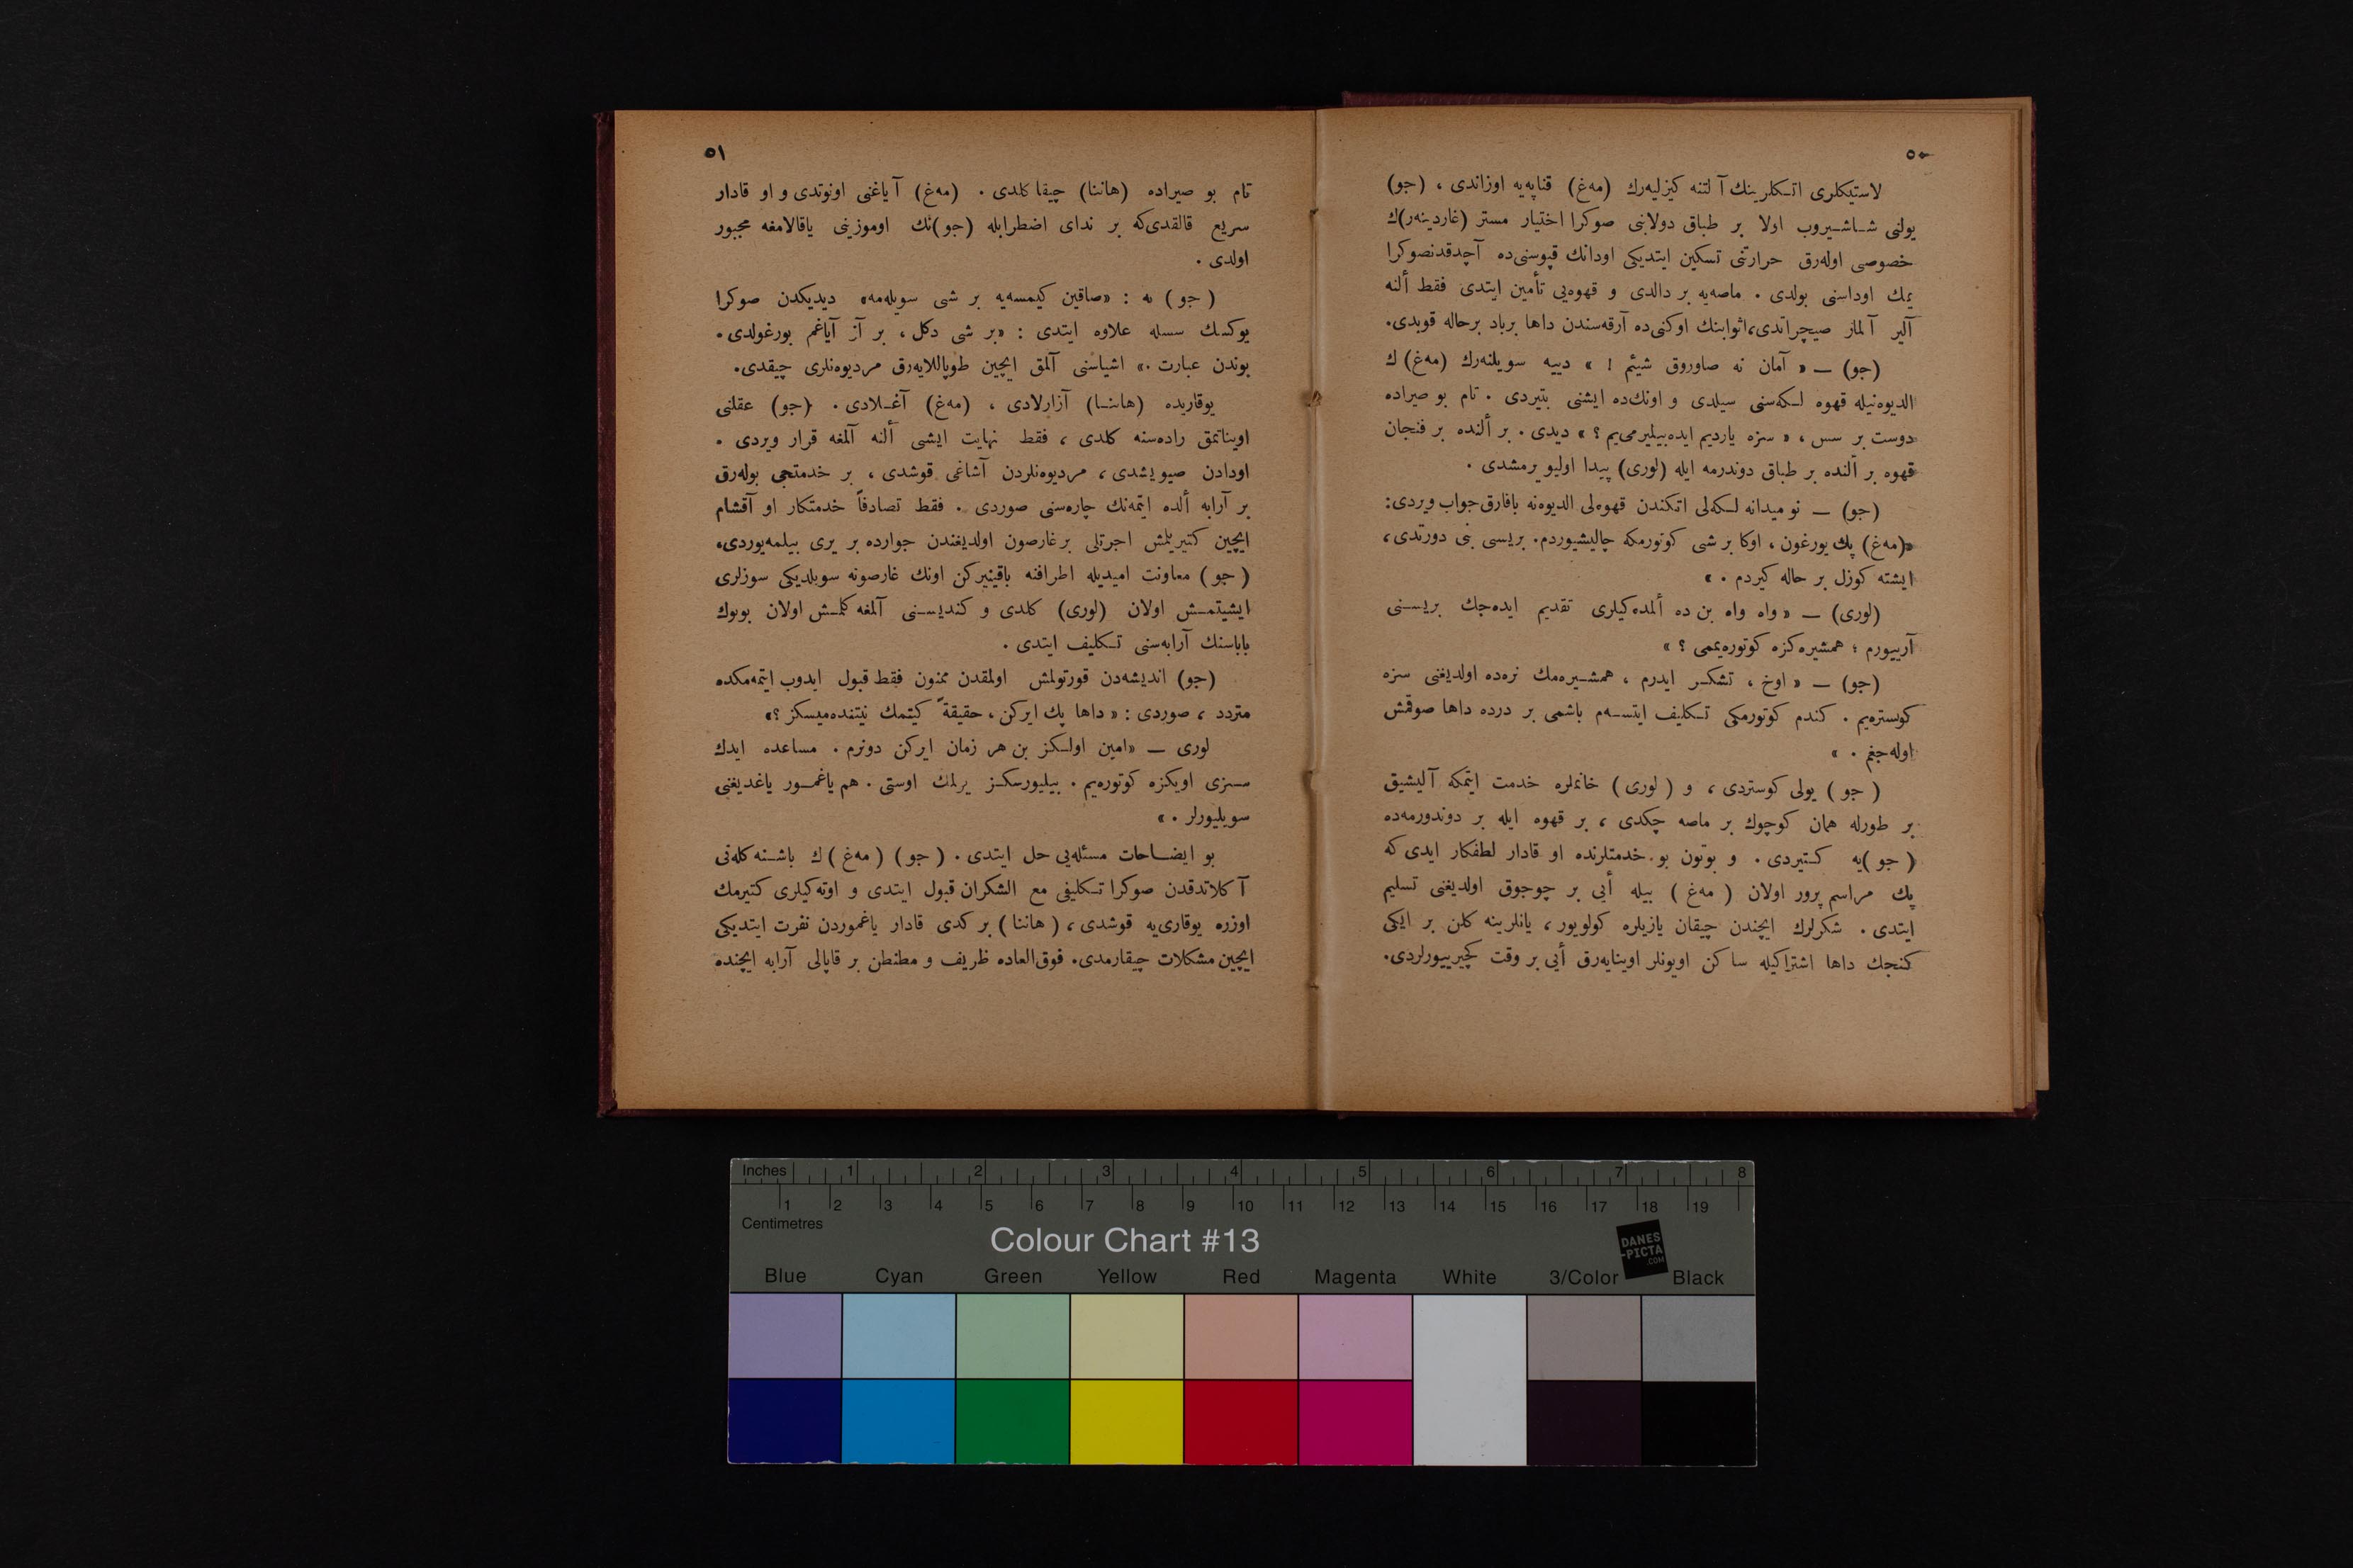 ٥٠
لاستيكلرى اتـكلرينك آ لتنه كيزليه‌رك (مه‌غ) قناپه‌يه اوزاندى ، (جو)
يولنى شـاشـيروب اولا بر طباق دولابنى صوكرا اختيار مستر (غاردينه‌ر)ك
خصوصى اوله‌رق حرارتنى تسكين ايتديكى اودانك قپوسنى‌ده آچدقدنصوكرا
يمك اوداسنى بولدى . ماصه‌يه بر دالدى و قهوه‌يى تأمين ايتدى فقط ألنه
آلير آلماز صيچراتدى،اثوابنك اوكنى‌ده آرقه‌سندن داها برباد برحاله قويدى.
(جو) — « آمان نه صاوروق شيئم ! » دييه سويلنه‌رك (مه‌غ) ك
الديوه‌نيله قهوه لـكه‌سنى سيلدى و اونك‌ده ايشنى بتيردى . تام بو صيراده
دوست بر سس ، « سزه يارديم ايده‌بيليرمى‌يم ؟ » ديدى . بر ألنده بر فنجان
قهوه بر ألنده بر طباق دوندرمه ايله (لورى) پيدا اوليويرمشدى .
(جو) — نوميدانه لـكه‌لى اتكندن قهوه‌لى الديوه‌نه باقارق جواب ويردى:
«(مه‌غ) پك يورغون ، اوكا بر شى كوتورمكه چاليشيوردم. بريسى بنى دورتدى،
ايشته كوزل بر حاله كيردم . »
(لورى) — « واه واه بن ده ألمده‌كيلرى تقديم ايده‌جك بريـسنى
آرييورم ؛ همشيره‌كزه كوتوره‌يممى ؟ »
(جو) — « اوخ ، تشكـر ايدرم ، همشـيره‌مك نره‌ده اولديغنى سزه
كوستره‌يم . كندم كوتورمكى تـكليف ايتسـه‌م باشمى بر درده داها صوقمش
اوله‌جغم . »
( جو ) يولى كوستردى ، و ( لورى ) خانملره خدمت ايتمكه آليشيق
بر طورله همان كوچوك بر ماصه چكدى ، بر قهوه ايله بر دوندورمه‌ده
( جو )يه كـتيردى . و بوتون بو خدمتلرنده او قادار لطفكار ايدى كه
پك مراسم پرور اولان ( مه‌غ ) بيله أيى بر چوجوق اولديغنى تسليم
ايتدى . شكرلرك ايچندن چيقان يازيلره كولويور ، يانلرينه كلن بر ايكى
كنجك داها اشتراكيله ساكن اويونلر اوينايه‌رق أيى بر وقت كچيرييورلردى.
٥١
تام بو صيراده (هاننا) چيقا كلدى . (مه‌غ) آياغنى اونوتدى و او قادار
سريع قالقدى‌كه بر نداى اضطرابله (جو)نك اوموزينى ياقالامغه مجبور
اولدى .
( جو ) يه : «صاقين كيمسه‌يه بر شى سويله‌مه» ديديكدن صوكرا
يوكسك سسله علاوه ايتدى : «بر شى دكل ، بر آز آياغم بورغولدى.
بوندن عبارت .» اشياسنى آلمق ايچين طوپاللايه‌رق مرديوه‌نلرى چيقدى.
يوقاريده (هاننـا) آزارلادى ، (مه‌غ) آغـلادى . (جو) عقلنى
اويناتمق راده‌سنه كلدى ، فقط نهايت ايشى ألنه آلمغه قرار ويردى .
اودادن صيويشدى ، مرديوه‌نلردن آشاغى قوشدى ، بر خدمتجى بوله‌رق
بر آرابه ألده ايتمه‌نك چاره‌سنى صوردى . فقط تصادفاً خدمتكار او آقشام
ايچين كتيريلمش اجرتلى بر غارصون اولديغندن جوارده بر يرى بيلمه‌يوردى،
( جو ) معاونت اميديله اطرافنه باقينيركن اونك غارصونه سويلديكى سوزلرى
ايشيتمـش اولان (لورى) كلدى و كنديـسنى آلمغه كلمـش اولان بويوك
باباسنك آرابه‌سنى تـكليف ايتدى .
(جو) انديشه‌دن قورتولمش اولمقدن ممنون فقط قبول ايدوب ايتمه‌مكده
متردد ، صوردى : « داها پك ايركن ، حقيقةً كيتمك نيتنده‌ميسكز ؟»
لورى — «امين اولـكز بن هر زمان ايركن دونرم . مساعده ايدك
سـزى اويكزه كوتوره‌يم . بيليورسكـز يولمك اوستى . هم ياغمـور ياغديغنى
سويليورلر . »
بو ايضـاحات مسئله‌يى حل ايتدى . ( جو ) ( مه‌غ ) ك باشـنه كله‌نى
آكلاتدقدن صوكرا تـكليفى مع الشكران قبول ايتدى و اوته‌كيلرى كتيرمك
اوزره يوقارى‌يه قوشدى ، ( هاننا ) بر كدى قادار ياغموردن نفرت ايتديكى
ايچين مشكلات چيقارمدى. فوق‌العاده ظريف و مطنطن بر قاپالى آرابه ايچنده
Inches 1 2 3 4 5 6 7 8
1 2 3 4 5 6 7 8 9 10 11 12 13 14 15 16 17 18 19
Centimetres
Colour Chart #13
DANES
-PICTA
.COM
Blue Cyan Green Yellow Red Magenta White 3/Color Black